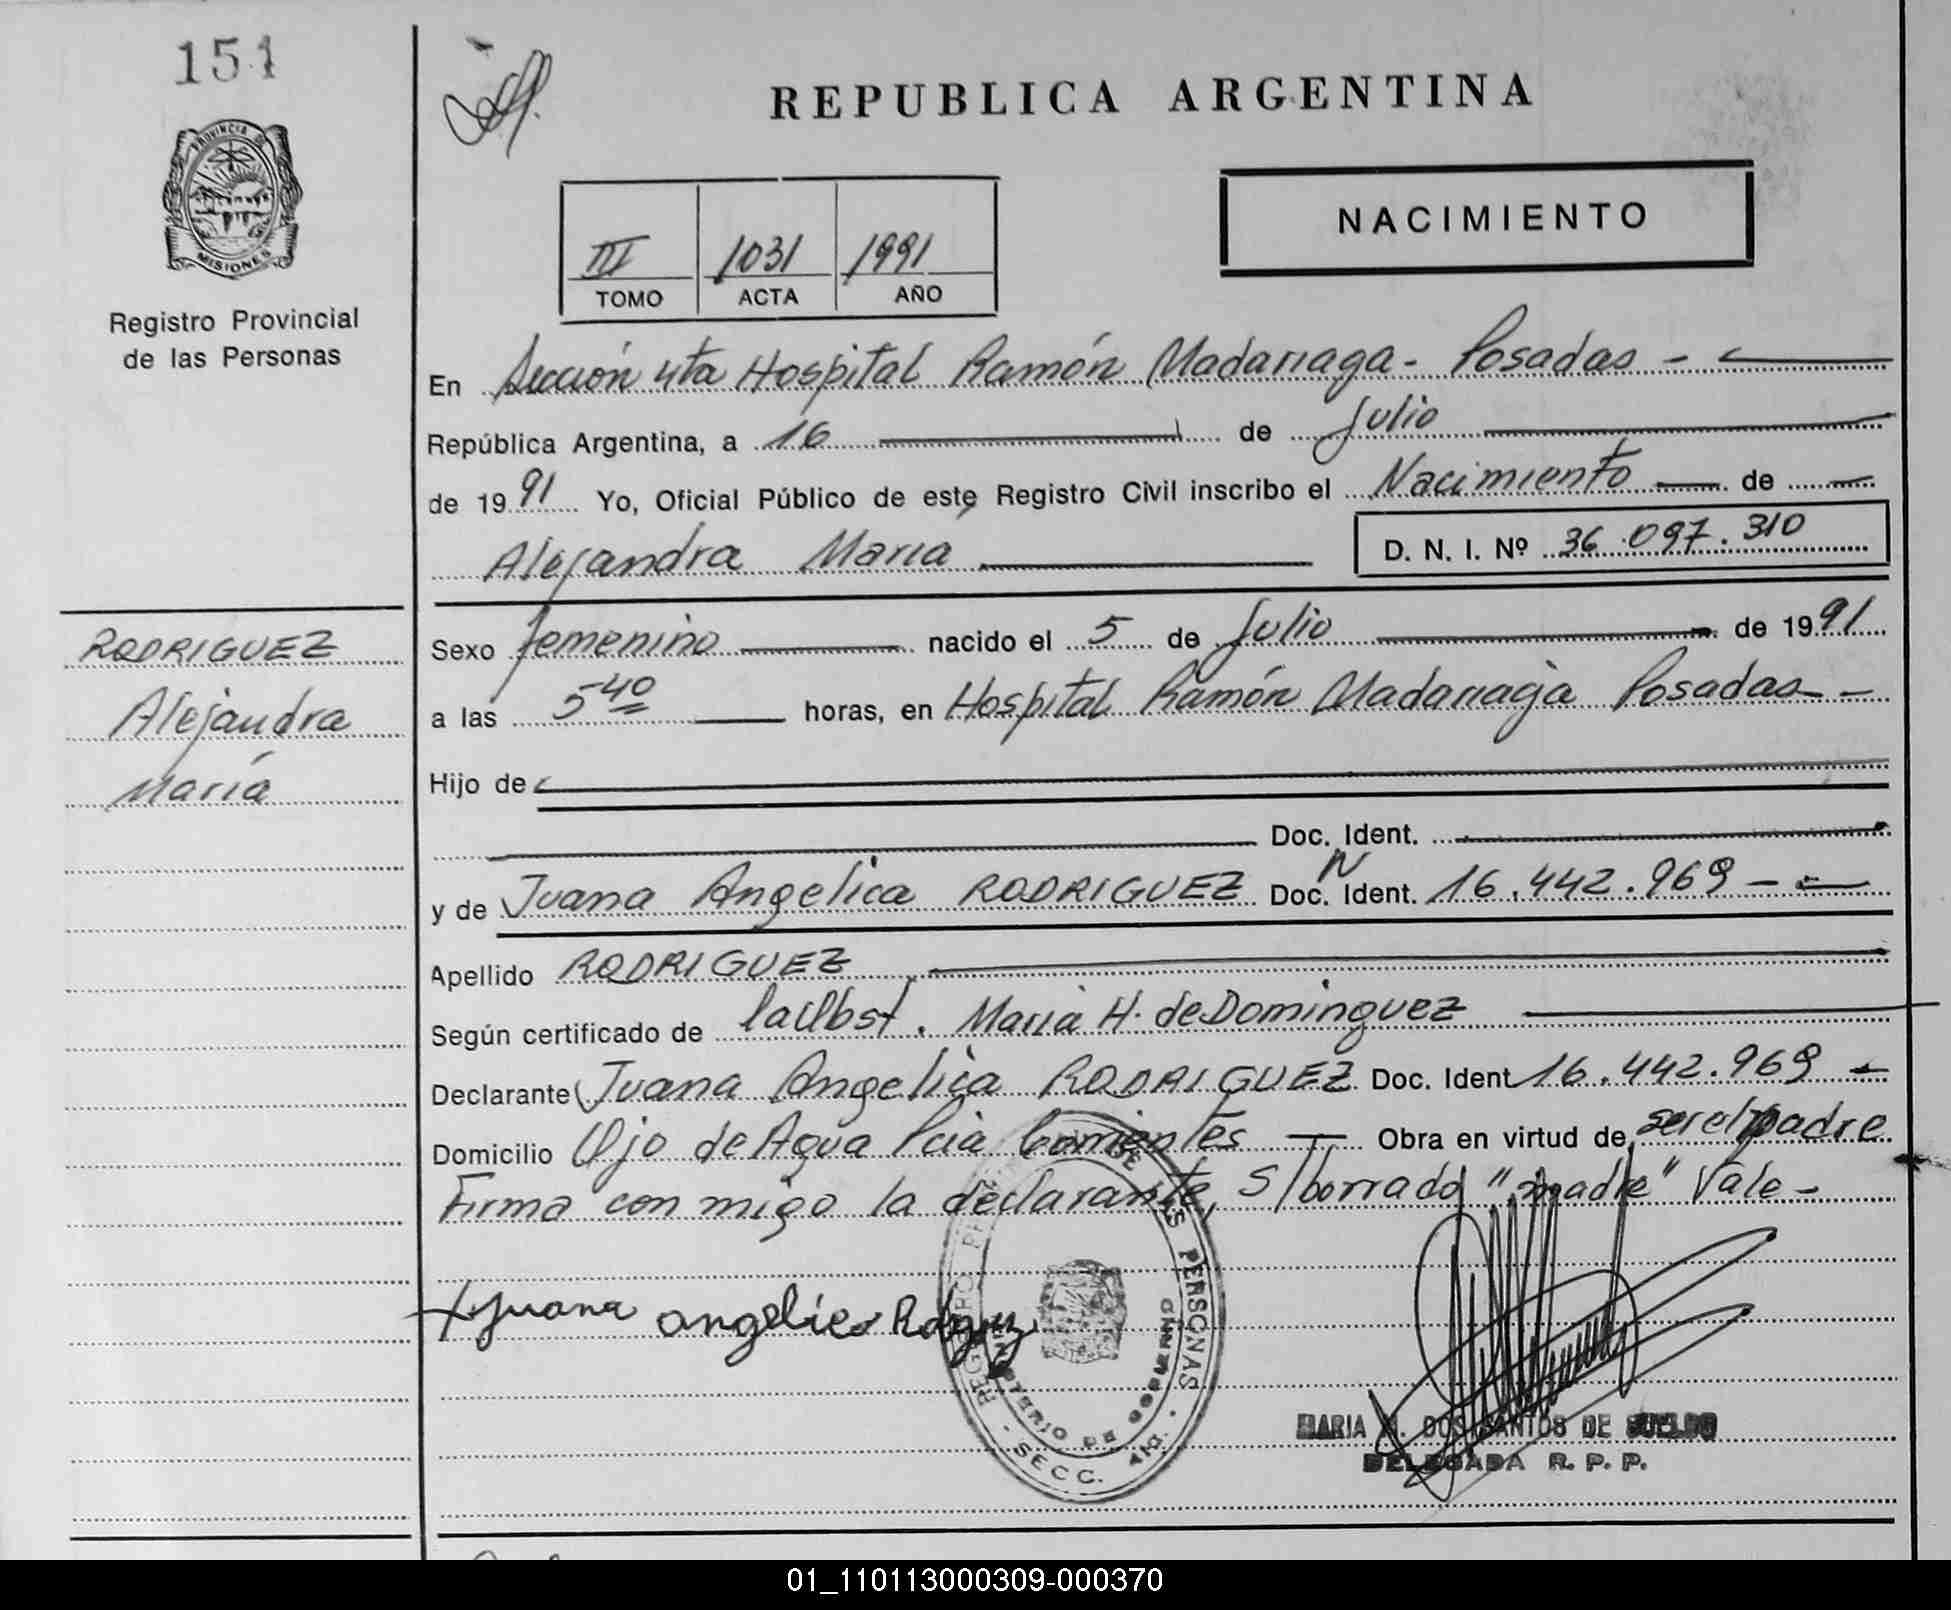 151
REPUBLICA ARGENTINA
PROVINCIA DE
MISIONES
NACIMIENTO
III 1031 1991
TOMO ACTA AÑO
Registro Provincial
de las Personas
En Sección 4ta Hospital Ramón Madariaga - Posadas -
República Argentina, a 16 de Julio
de 1991 Yo, Oficial Público de este Registro Civil inscribo el Nacimiento de
Alejandra María D. N. I. Nº 36.097.310
RODRIGUEZ
Alejandra
María
Sexo femenino nacido el 5 de Julio de 1991
a las 5 40 horas, en Hospital Ramón Madariaga Posadas -
Hijo de
Doc. Ident.
y de Juana Angelica RODRIGUEZ Doc. N Ident. 16.442.969 -
Apellido RODRIGUEZ
Según certificado de la Obst. Maria H. de Dominguez
Declarante Juana Angelica RODRIGUEZ Doc. Ident 16.442.969 -
Domicilio Ojo de Agua Pcia Corrientes Obra en virtud de ser el padre
Firma con migo la declarante, S/borrado "madre" Vale -
Juana angelica
REGISTRO DE LAS PERSONAS
MINISTERIO DE GOBIERNO
SECC. 4ta.
MARIA DOS SANTOS DE
DELEGADA R. P. P.
01_110113000309-000370